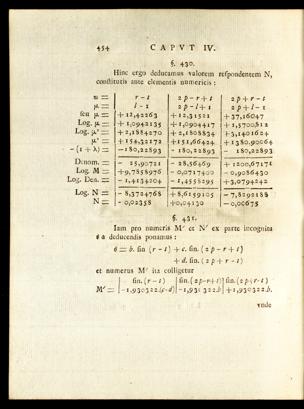 454 CAPVT IV.
§. 430.
Hinc ergo deducamus valorem respondentem N,
constitutis ante elementis numericis:
n = | r - 1 | 2p - r + 1 | 2p + r - 1
μ = | l - 1 | 2p - l + 1 | 2p + l - 1
seu μ = | + 12,42263 | + 12,31521 | + 37,16047
Log. μ = | + 1,0942135 | + 1,0904417 | + 1,5700812
Log. μ² = | + 2,1884270 | + 2,1808834 | + 3,1401624
μ² = | + 154,32172 | + 151,66424 | + 1380,90064
- (1 + λ) = | - 180,22893 | - 180,22893 | - 180,22893
Denom. = | - 25,90721 | - 28,56469 | + 1200,67171
Log. M = | + 9,7858976 | - 0,0717400 | - 0,9086430
Log. Den. = | - 1,4134204 | - 1,4558295 | + 3,0794242
Log. N = | - 8,3724768 | + 8,6159105 | - 7,8292188
N = | - 0,02358 | + 0,04130 | - 0,00675
§. 431.
Iam pro numeris M' et N' ex parte incognita
deducendis ponamus:
= b. sin (r - 1) + c. sin. (2p - r + 1)
+ d. sin. (2p + r - 1)
et numerus M' ita colligetur
| sin. (r - 1) | sin. (2p-r+1) | sin. (2p+r-1)
M' = | - 1,930322.(c-d) | 322.b | + 1,930322.b.
vnde